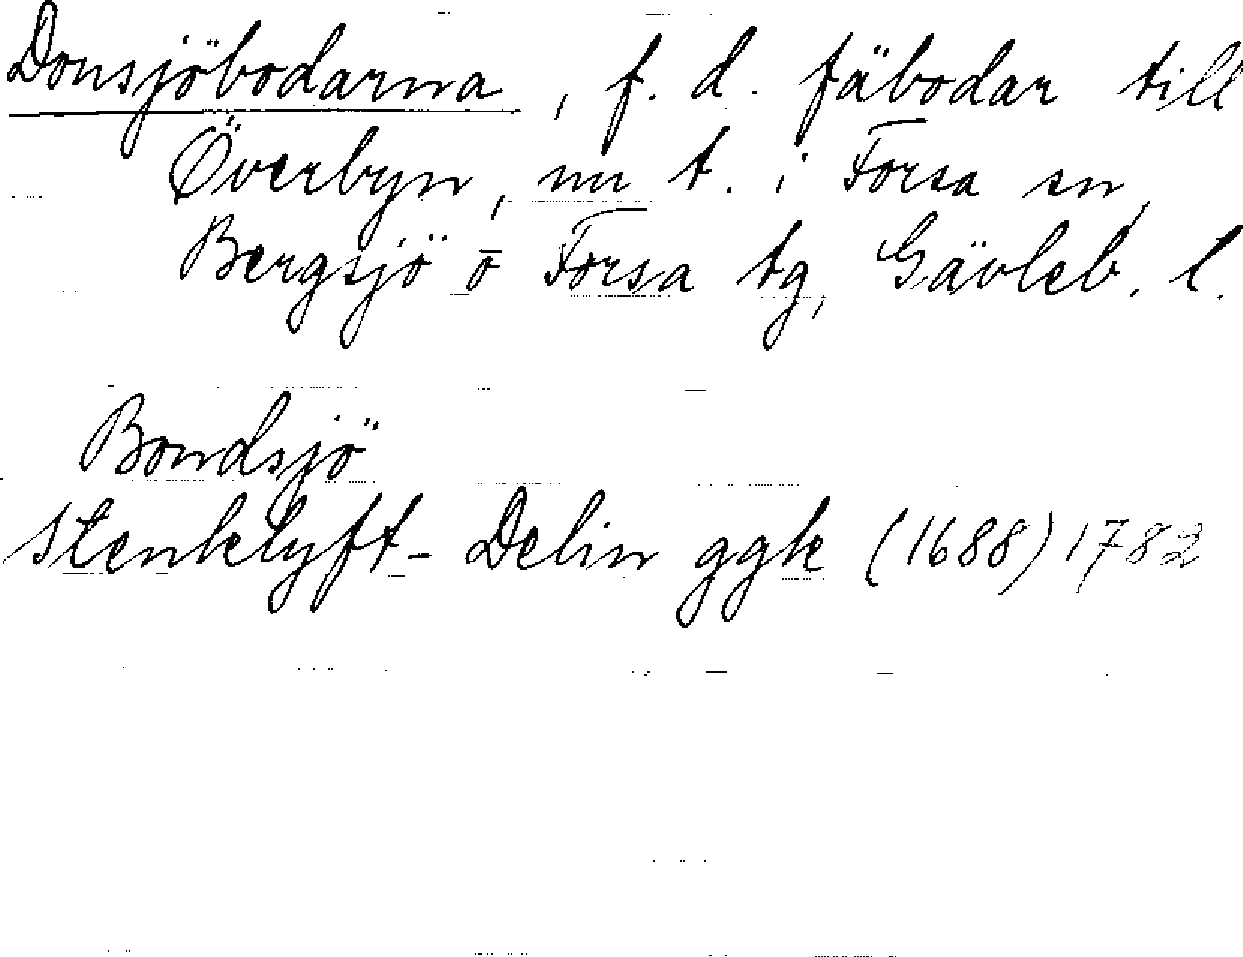 Donsjöbodarna, f. d. fäbodar till
Överbyn, nu t. i Forsa sn,
Bergsjö o Forsa tg, Gävleb. l.
Bondsjö
Stenklyft- Delin ggk (1688) 1782